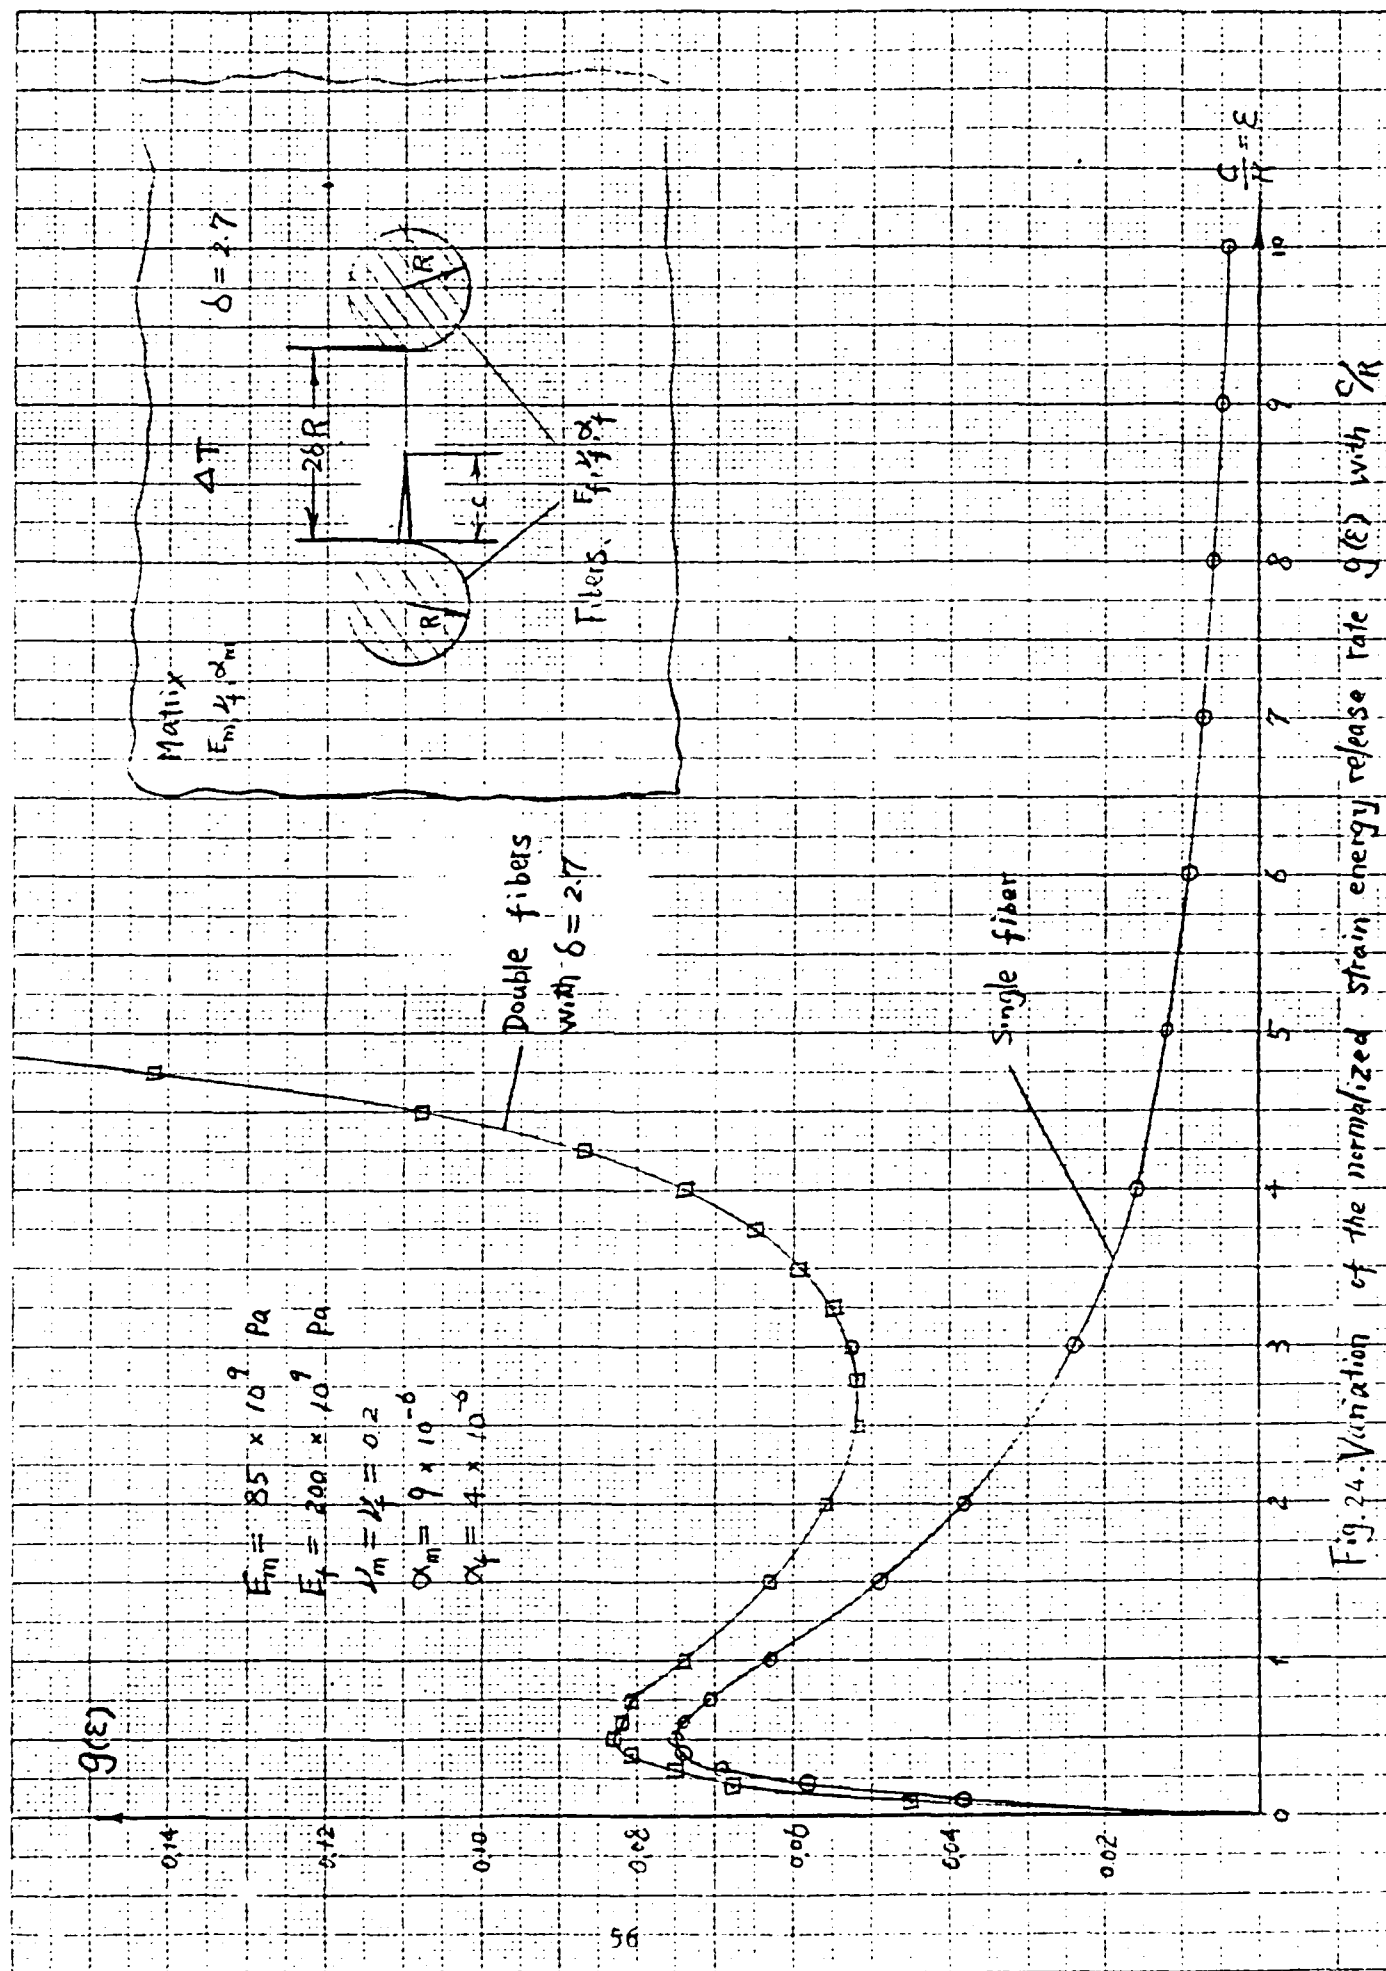 g(ε)
0.14
0.12
0.10
0.08
0.06
0.04
0.02
0
1
2
3
4
5
6
7
8
9
10
C/R = ε
E_m = 85 × 10^9 Pa
E_f = 200 × 10^9 Pa
ν_m = ν_f = 0.2
α_m = 9 × 10^-6
α_f = 4 × 10^-6
Double fibers
with δ = 2.7
Single fiber
Matrix
E_m, ν_f, α_m
ΔT
δ = 2.7
2δR
R
R
c
Fibers.
E_f, ν_f, α_f
Fig. 24. Variation of the normalized strain energy release rate g(ε) with C/R
56